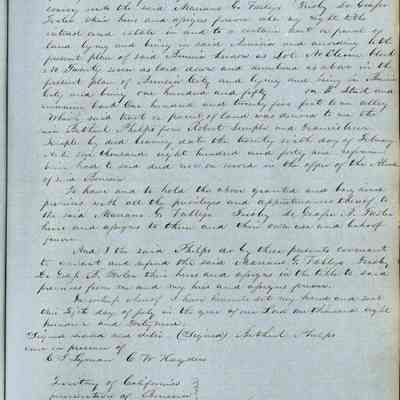 convey unto the said Mariano G. Vallejo Frisby De Graps
Foster their heirs and assigns forever all my right title
interest and estate in and to a certain lot or parcel of
land lying and being in said Benicia and according to the
present plan of said Benicia known as Lot No Eleven block
No Twenty seven as laid down and numbered as above in the
present plan of Benicia City and lying and being in Benicia
City and being one hundred and fifty on H Street and
running back One hundred and twenty five feet to an alley
Which said tract or parcel of land was deeded to me the
said Bethuel Phelps from Robert Semple and Frances
Semple by deed bearing date the twenty sixth day of February
A.D. One thousand eight hundred and forty nine reference
being had to said deed now on record in the office of the Alcalde
of said Benicia
To have and to hold the above granted and bargained
premises with all the privileges and appurtenances thereof to
the said Mariano G. Vallejo Frisby De Graps A Foster
heirs and assigns to them and their own use and behoof
forever
And I the said Phelps do by these presents covenant
to warrant and defend the said Mariano G. Vallejo Frisby
De Grap A Foster their heirs and assigns in the title to said
premises from me and my heirs and assigns forever
In witness whereof I have hereunto set my hand and seal
this day of July in the year of our Lord One thousand eight
hundred and forty nine
Signed sealed and (Signed) Bethuel Phelps
in presence of
C S Lyman C W Hayden
Territory of California
of Benicia